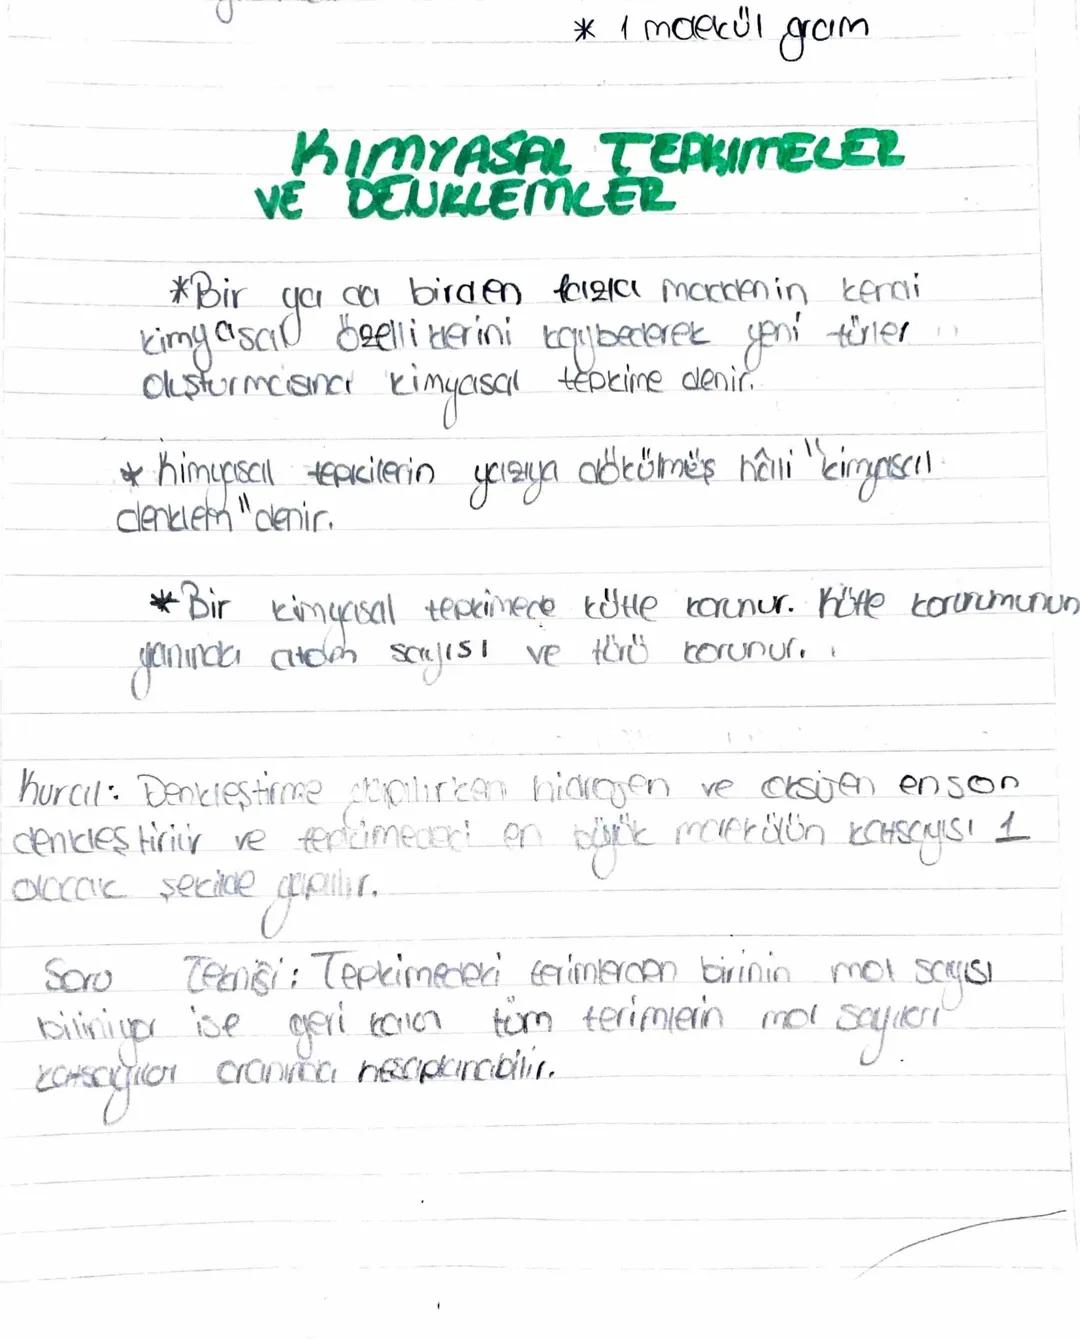 * 1 molekül gram
KIMYASAL TEPKIMELER
VE DENKLEMLER
*Bir ya da birden fazla maddenin kendi
kimyasal özelliklerini kaybederek yeni türler
oluşturmasına kimyasal tepkime denir.
* Kimyasal tepkilerin yazıya dökülmüş hâli "kimyasal
denklem" denir.
*Bir kimyasal tepkimede kütle korunur. Kütle korunumunun
yanında atom sayısı ve türü korunur.
Kural: Denkleştirme yapılırken hidrojen ve oksijen en son
denkleştirilir ve tepkimedeki en büyük molekülün katsayısı 1
olacak şekilde yapılır.
Soru Tekniği: Tepkimedeki terimlerden birinin mol sayısı
biliniyor ise geri kalan tüm terimlerin mol sayıları
katsayılar oranında hesaplanabilir.